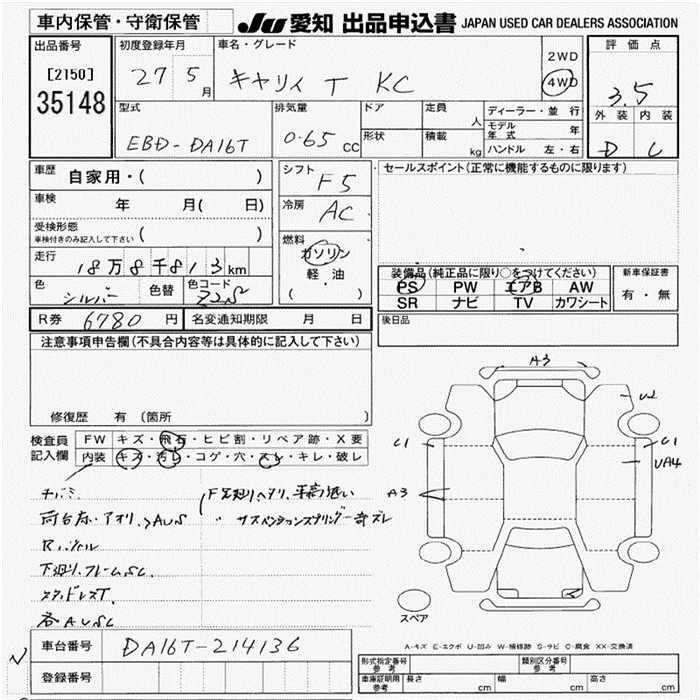 車内保管・守衛保管
JU 愛知 出品申込書 JAPAN USED CAR DEALERS ASSOCIATION
出品番号
[2150]
35148
初度登録年月
27 5 月
車名・グレード
キャリイ T KC
2WD
4WD
評価点
3.5
外装 内装
D C
型式
EBD-DA16T
排気量
0.65 cc
ドア
形状
定員 人
積載 kg
ディーラー・並行
モデル年式 年
ハンドル 左・右
車歴 自家用・( )
車検 年 月( 日)
受検形態
車検付きのみ記入して下さい ( )
走行 18万8千813km
色 シルバー 色替 色コード Z2S
シフト F5
冷房 AC
燃料 ガソリン
軽・油
( )
セールスポイント(正常に機能するものに限ります)
装備品(純正品に限り○をつけてください)
PS PW エアB AW
SR ナビ TV カワシート
新車保証書
有・無
R券 6780 円 名変通知期限 月 日
後日品
注意事項申告欄(不具合内容等は具体的に記入して下さい)
修復歴 有(箇所 )
検査員記入欄
FW キズ・飛石・ヒビ割・リペア跡・X要
内装 キズ・汚レ・コゲ・穴・スレ・キレ・破レ
F足廻りヘタリ、車高低い
荷台赤・アオリ、AUS
〃 サスペンションスプリング一部ズレ
下廻り、フレームSC
各AUSC
A3
U2
C1
C1
UA4
A3
スペア
A-キズ E-エクボ U-凹み W-補修跡 S-サビ C-腐食 XX-交換済
車台番号 DA16T-214136
登録番号
形式指定番号 参考
類別区分番号 参考
車庫証明用 参考 長さ cm 幅 cm 高さ cm